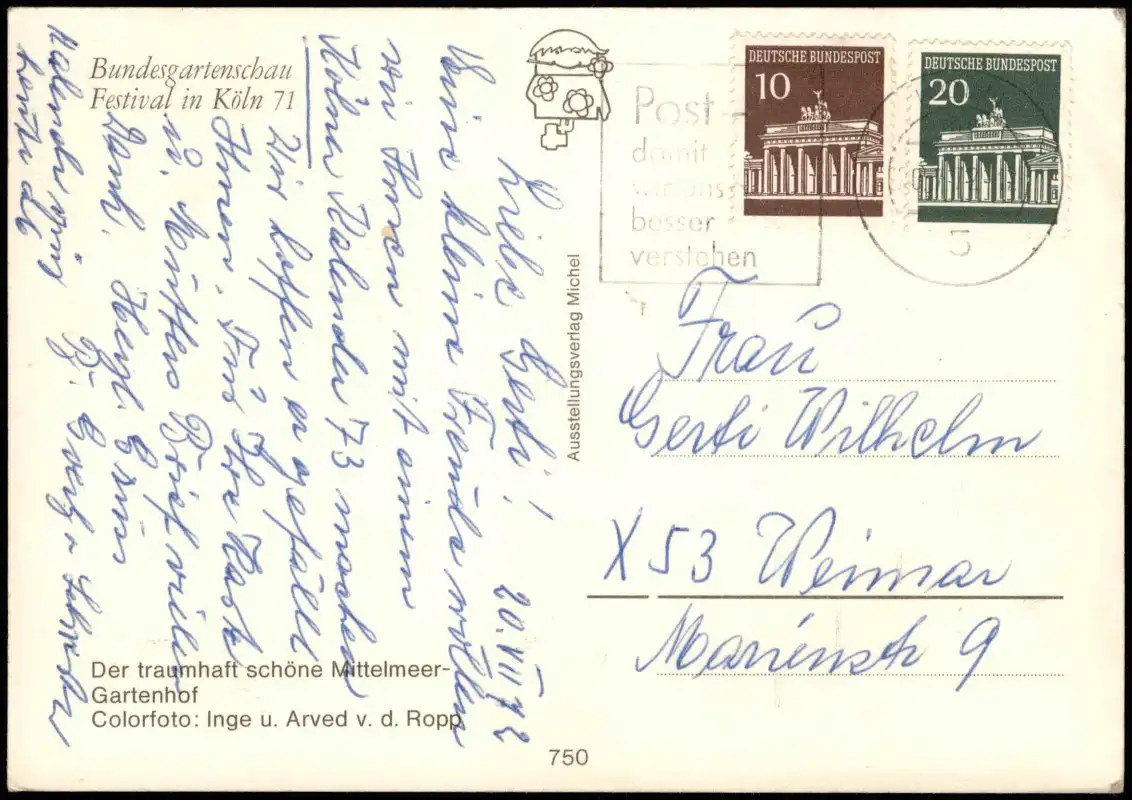 Bundesgartenschau
Festival in Köln 71
Liebe Gerti! 20.VIII 72
Eine kleine Freude wollen
wir Ihnen mit einem
Kölner Kalender 73 machen
Wir hoffen er gefällt
Ihnen. Für Ihre Karte
u. Mutters Brief vielen
Dank. Herzl. Grüsse
Kalender ging
heute ab
Der traumhaft schöne Mittelmeer-
Gartenhof
Colorfoto: Inge u. Arved v. d. Ropp
750
Ausstellungsverlag Michel
Post-
damit
wir uns
besser
verstehen
DEUTSCHE BUNDESPOST
10
DEUTSCHE BUNDESPOST
20
Frau
Gerti Wilhelm
X 53 Weimar
Marienstr 9